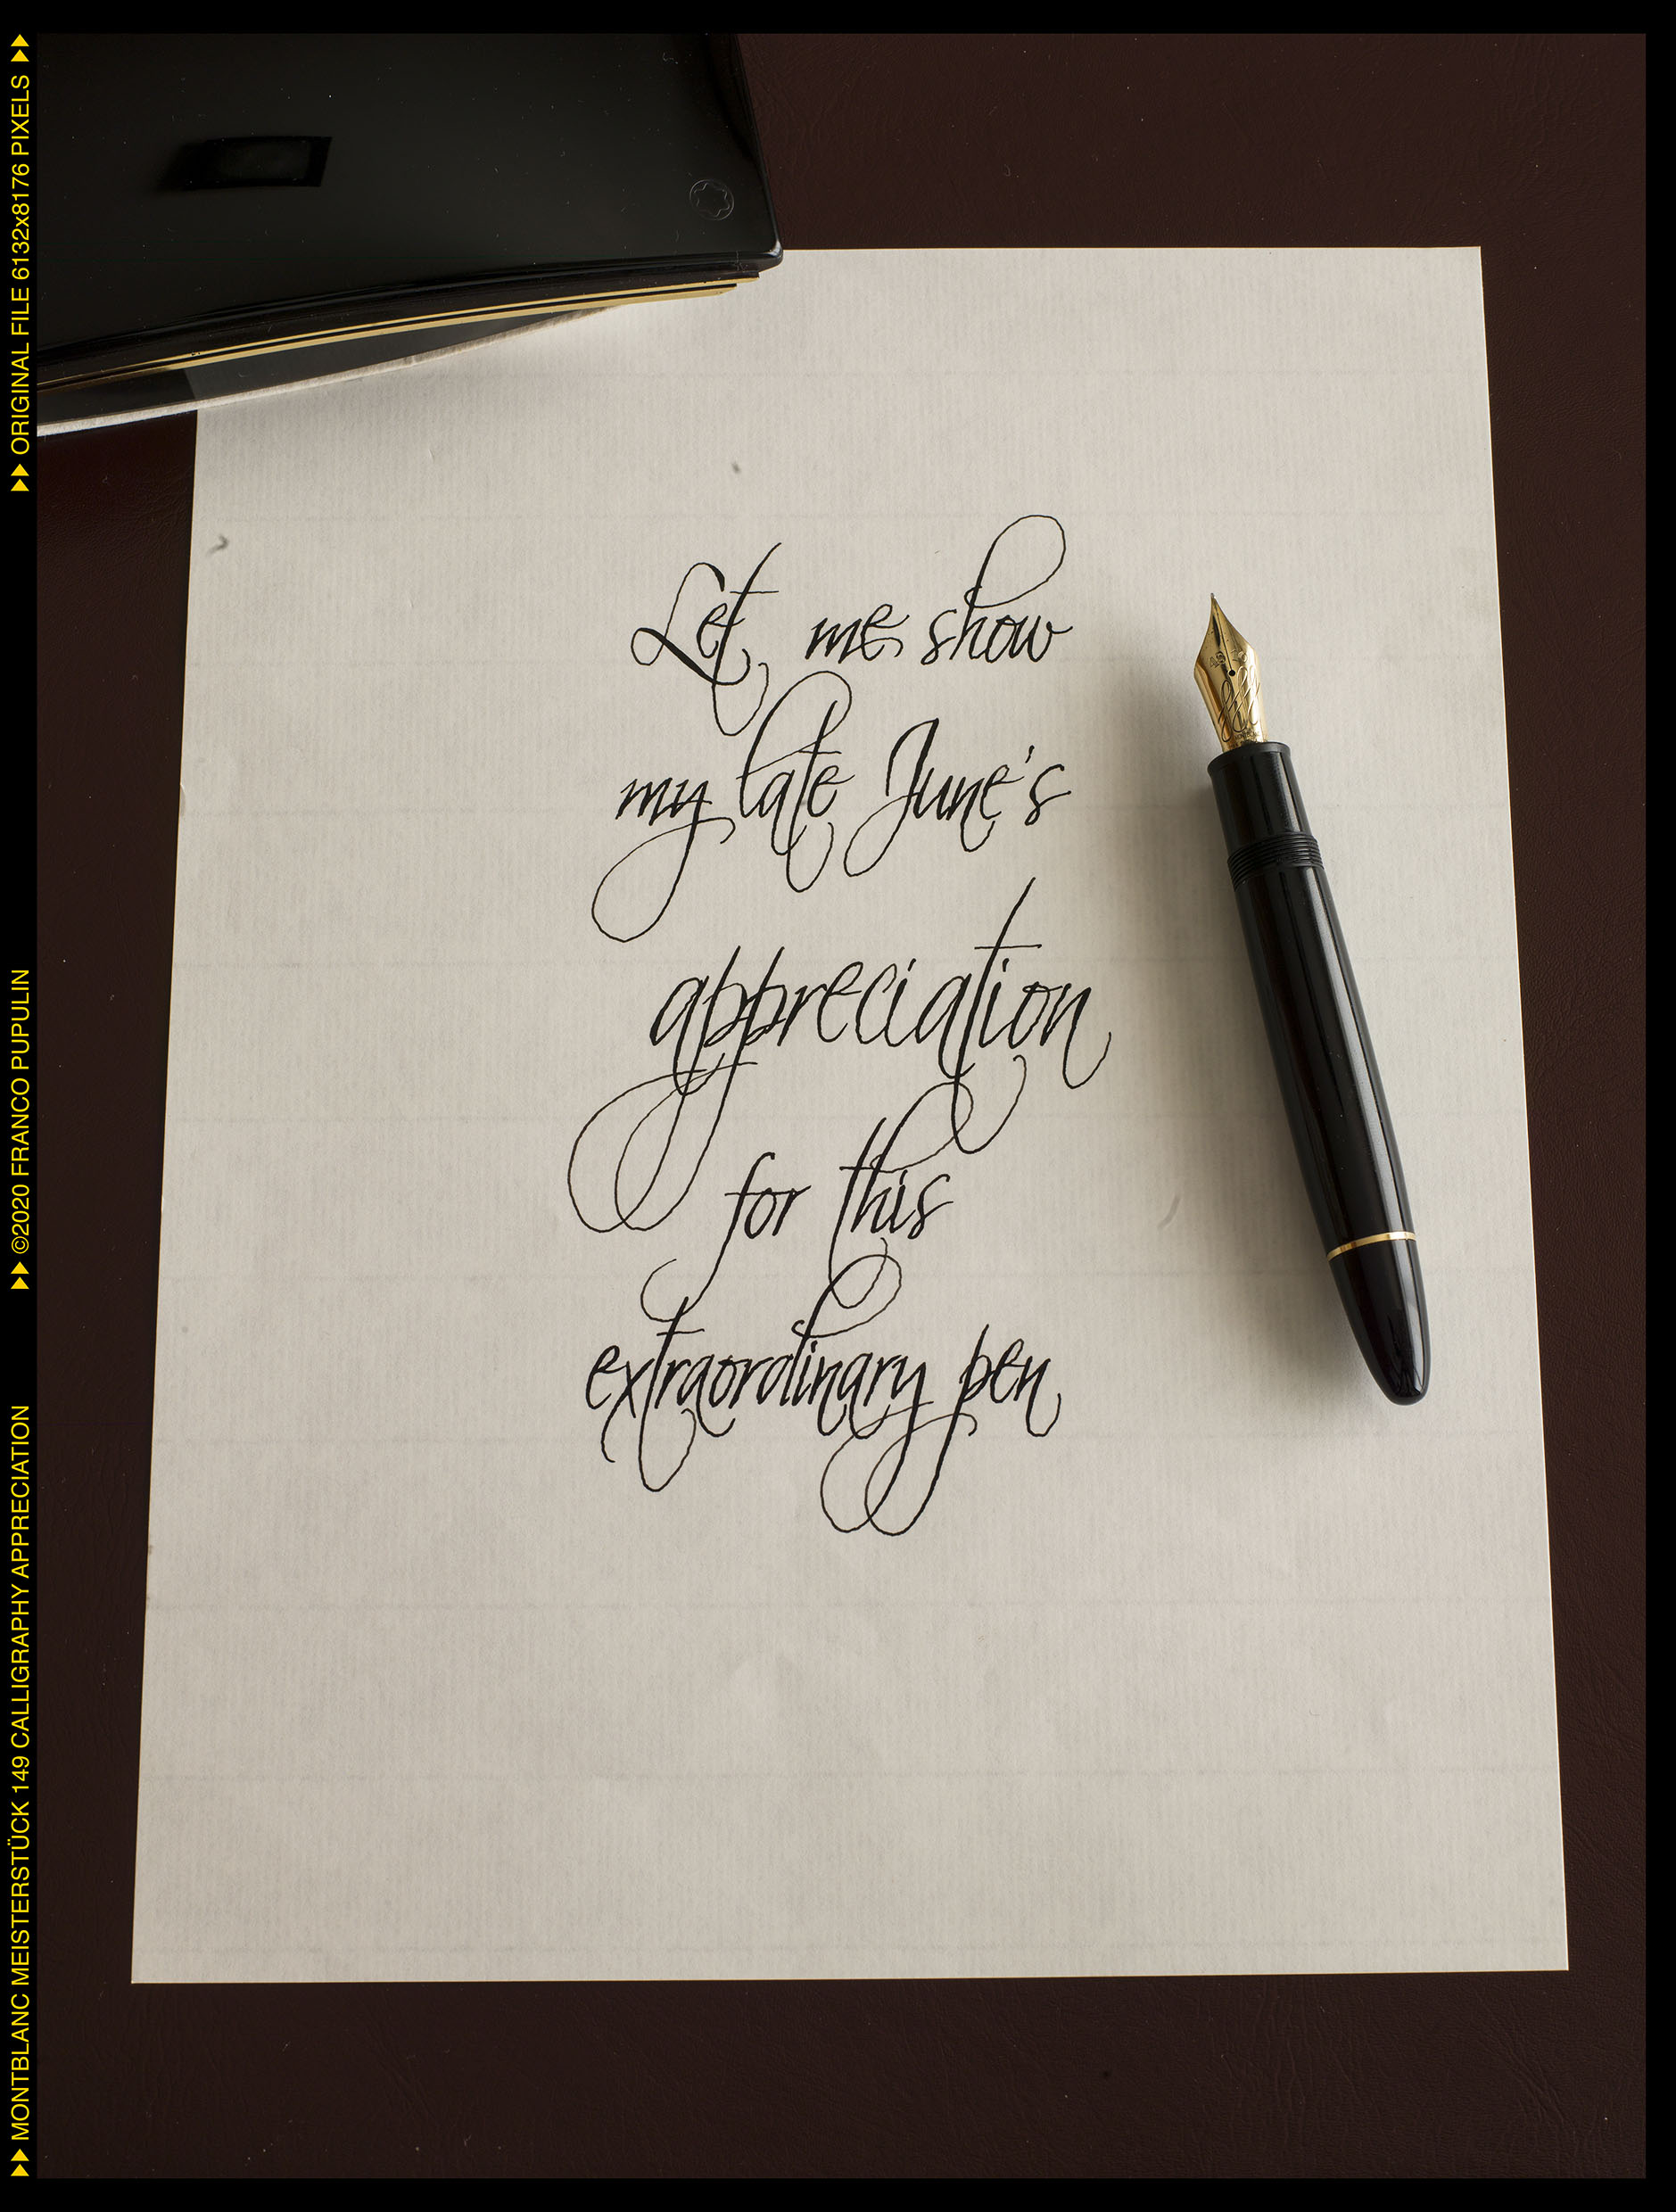 Let me show
my late June's
appreciation
for this
extraordinary pen
▶▶ MONTBLANC MEISTERSTÜCK 149 CALLIGRAPHY APPRECIATION
▶▶ ©2020 FRANCO PUPULIN
▶▶ ORIGINAL FILE 6132x8176 PIXELS ▶▶